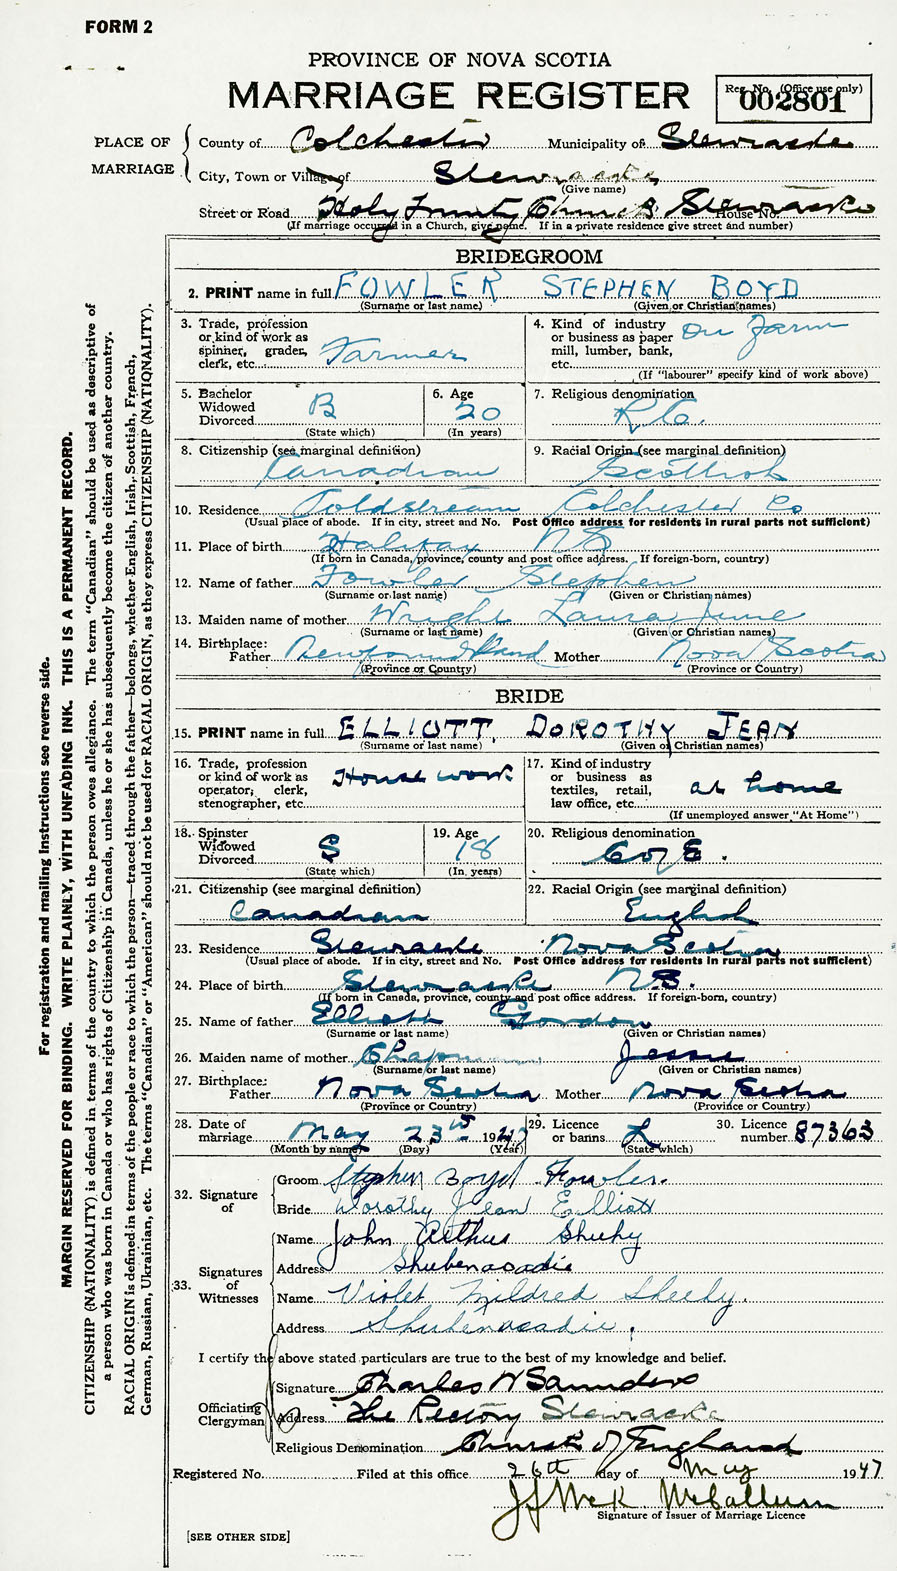 FORM 2
PROVINCE OF NOVA SCOTIA
MARRIAGE REGISTER
Reg. No. (Office use only)
002801
PLACE OF MARRIAGE
County of Colchester Municipality of Stewiacke
City, Town or Village of Stewiacke
(Give name)
Street or Road Holy Trinity Church Stewiacke House No.
(If marriage occurred in a Church, give name. If in a private residence give street and number)
BRIDEGROOM
2. PRINT name in full FOWLER STEPHEN BOYD
(Surname or last name) (Given or Christian names)
3. Trade, profession or kind of work as spinner, grader, clerk, etc. Farmer
4. Kind of industry or business as paper mill, lumber, bank, etc. On Farm
(If "labourer" specify kind of work above)
5. Bachelor Widowed Divorced B
(State which)
6. Age 20
(In years)
7. Religious denomination R.C.
8. Citizenship (see marginal definition) Canadian
9. Racial Origin (see marginal definition) Scottish
10. Residence Coldstream Colchester Co
(Usual place of abode. If in city, street and No. Post Office address for residents in rural parts not sufficient)
11. Place of birth Halifax NS
(If born in Canada, province, county and post office address. If foreign-born, country)
12. Name of father Fowler Stephen
(Surname or last name) (Given or Christian names)
13. Maiden name of mother Wright Laura June
(Surname or last name) (Given or Christian names)
14. Birthplace: Father Newfoundland Mother Nova Scotia
(Province or Country) (Province or Country)
BRIDE
15. PRINT name in full ELLIOTT, DOROTHY JEAN
(Surname or last name) (Given or Christian names)
16. Trade, profession or kind of work as operator, clerk, stenographer, etc. House work
17. Kind of industry or business as textiles, retail, law office, etc. at home
(If unemployed answer "At Home")
18. Spinster Widowed Divorced S
(State which)
19. Age 18
(In years)
20. Religious denomination C of E.
21. Citizenship (see marginal definition) Canadian
22. Racial Origin (see marginal definition) English
23. Residence Stewiacke Nova Scotia
(Usual place of abode. If in city, street and No. Post Office address for residents in rural parts not sufficient)
24. Place of birth Stewiacke N.S.
(If born in Canada, province, county and post office address. If foreign-born, country)
25. Name of father Elliott Gordon
(Surname or last name) (Given or Christian names)
26. Maiden name of mother Chapman Jessie
(Surname or last name) (Given or Christian names)
27. Birthplace: Father Nova Scotia Mother Nova Scotia
(Province or Country) (Province or Country)
28. Date of marriage May 23rd 1947
(Month by name) (Day) (Year)
29. Licence or banns L
(State which)
30. Licence number 87363
32. Signature of
Groom Stephen Boyd Fowler.
Bride Dorothy Jean Elliott
33. Signatures of Witnesses
Name John Arthur Sheehy
Address Shubenacadie
Name Violet Mildred Sheehy.
Address Shubenacadie.
I certify the above stated particulars are true to the best of my knowledge and belief.
Officiating Clergyman
Signature Charles W Saunders
Address The Rectory Stewiacke
Religious Denomination Church of England
Registered No. Filed at this office 26th day of May 1947
McCallum
Signature of Issuer of Marriage Licence
[SEE OTHER SIDE]
For registration and mailing instructions see reverse side.
MARGIN RESERVED FOR BINDING. WRITE PLAINLY, WITH UNFADING INK. THIS IS A PERMANENT RECORD.
CITIZENSHIP (NATIONALITY) is defined in terms of the country to which the person owes allegiance. The term "Canadian" should be used as descriptive of
a person who was born in Canada or who has rights of Citizenship in Canada, unless he or she has subsequently become the citizen of another country.
RACIAL ORIGIN is defined in terms of the people or race to which the person—traced through the father—belongs, whether English, Irish, Scottish, French,
German, Russian, Ukrainian, etc. The terms "Canadian" or "American" should not be used for RACIAL ORIGIN, as they express CITIZENSHIP (NATIONALITY).